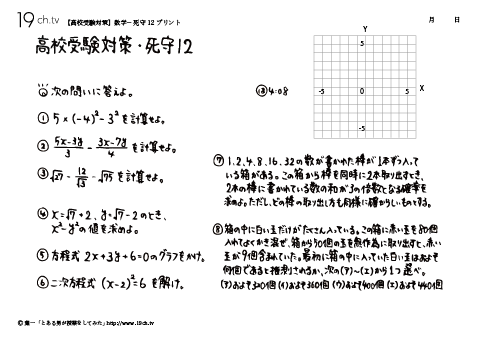 19ch.tv 【高校受験対策】数学-死守12プリント 月 日
高校受験対策・死守12
Q 次の問いに答えよ。
① 5×(-4)²-3²を計算せよ。
② (5x-3y)/3 - (3x-7y)/4 を計算せよ。
③ √27 - 12/√3 - √75 を計算せよ。
④ x=√7+2、y=√7-2のとき、
x²-y²の値を求めよ。
⑤ 方程式 2x+3y+6=0のグラフをかけ。
⑥ 二次方程式 (x-2)²=6 を解け。
Y
5
-5 0 5 X
-5
⑦ 1、2、4、8、16、32の数が書かれた棒が1本ずつ入って
いる箱がある。この箱から棒を同時に2本取り出すとき、
2本の棒に書かれている数の和が3の倍数となる確率を
求めよ。ただし、どの棒の取り出し方も同様に確からしいものとする。
⑧ 箱の中に白い玉だけがたくさん入っている。この箱に赤い玉を80個
入れてよくかき混ぜ、箱から50個の玉を無作為に取り出すと、赤い
玉が9個含まれていた。最初に箱の中に入っていた白い玉はおよそ
何個であると推測されるか、次の(ア)～(エ)から1つ選べ。
(ア)およそ320個 (イ)およそ360個 (ウ)およそ400個 (エ)およそ440個
Ⓒ 葉一「とある男が授業をしてみた」http://www.19ch.tv